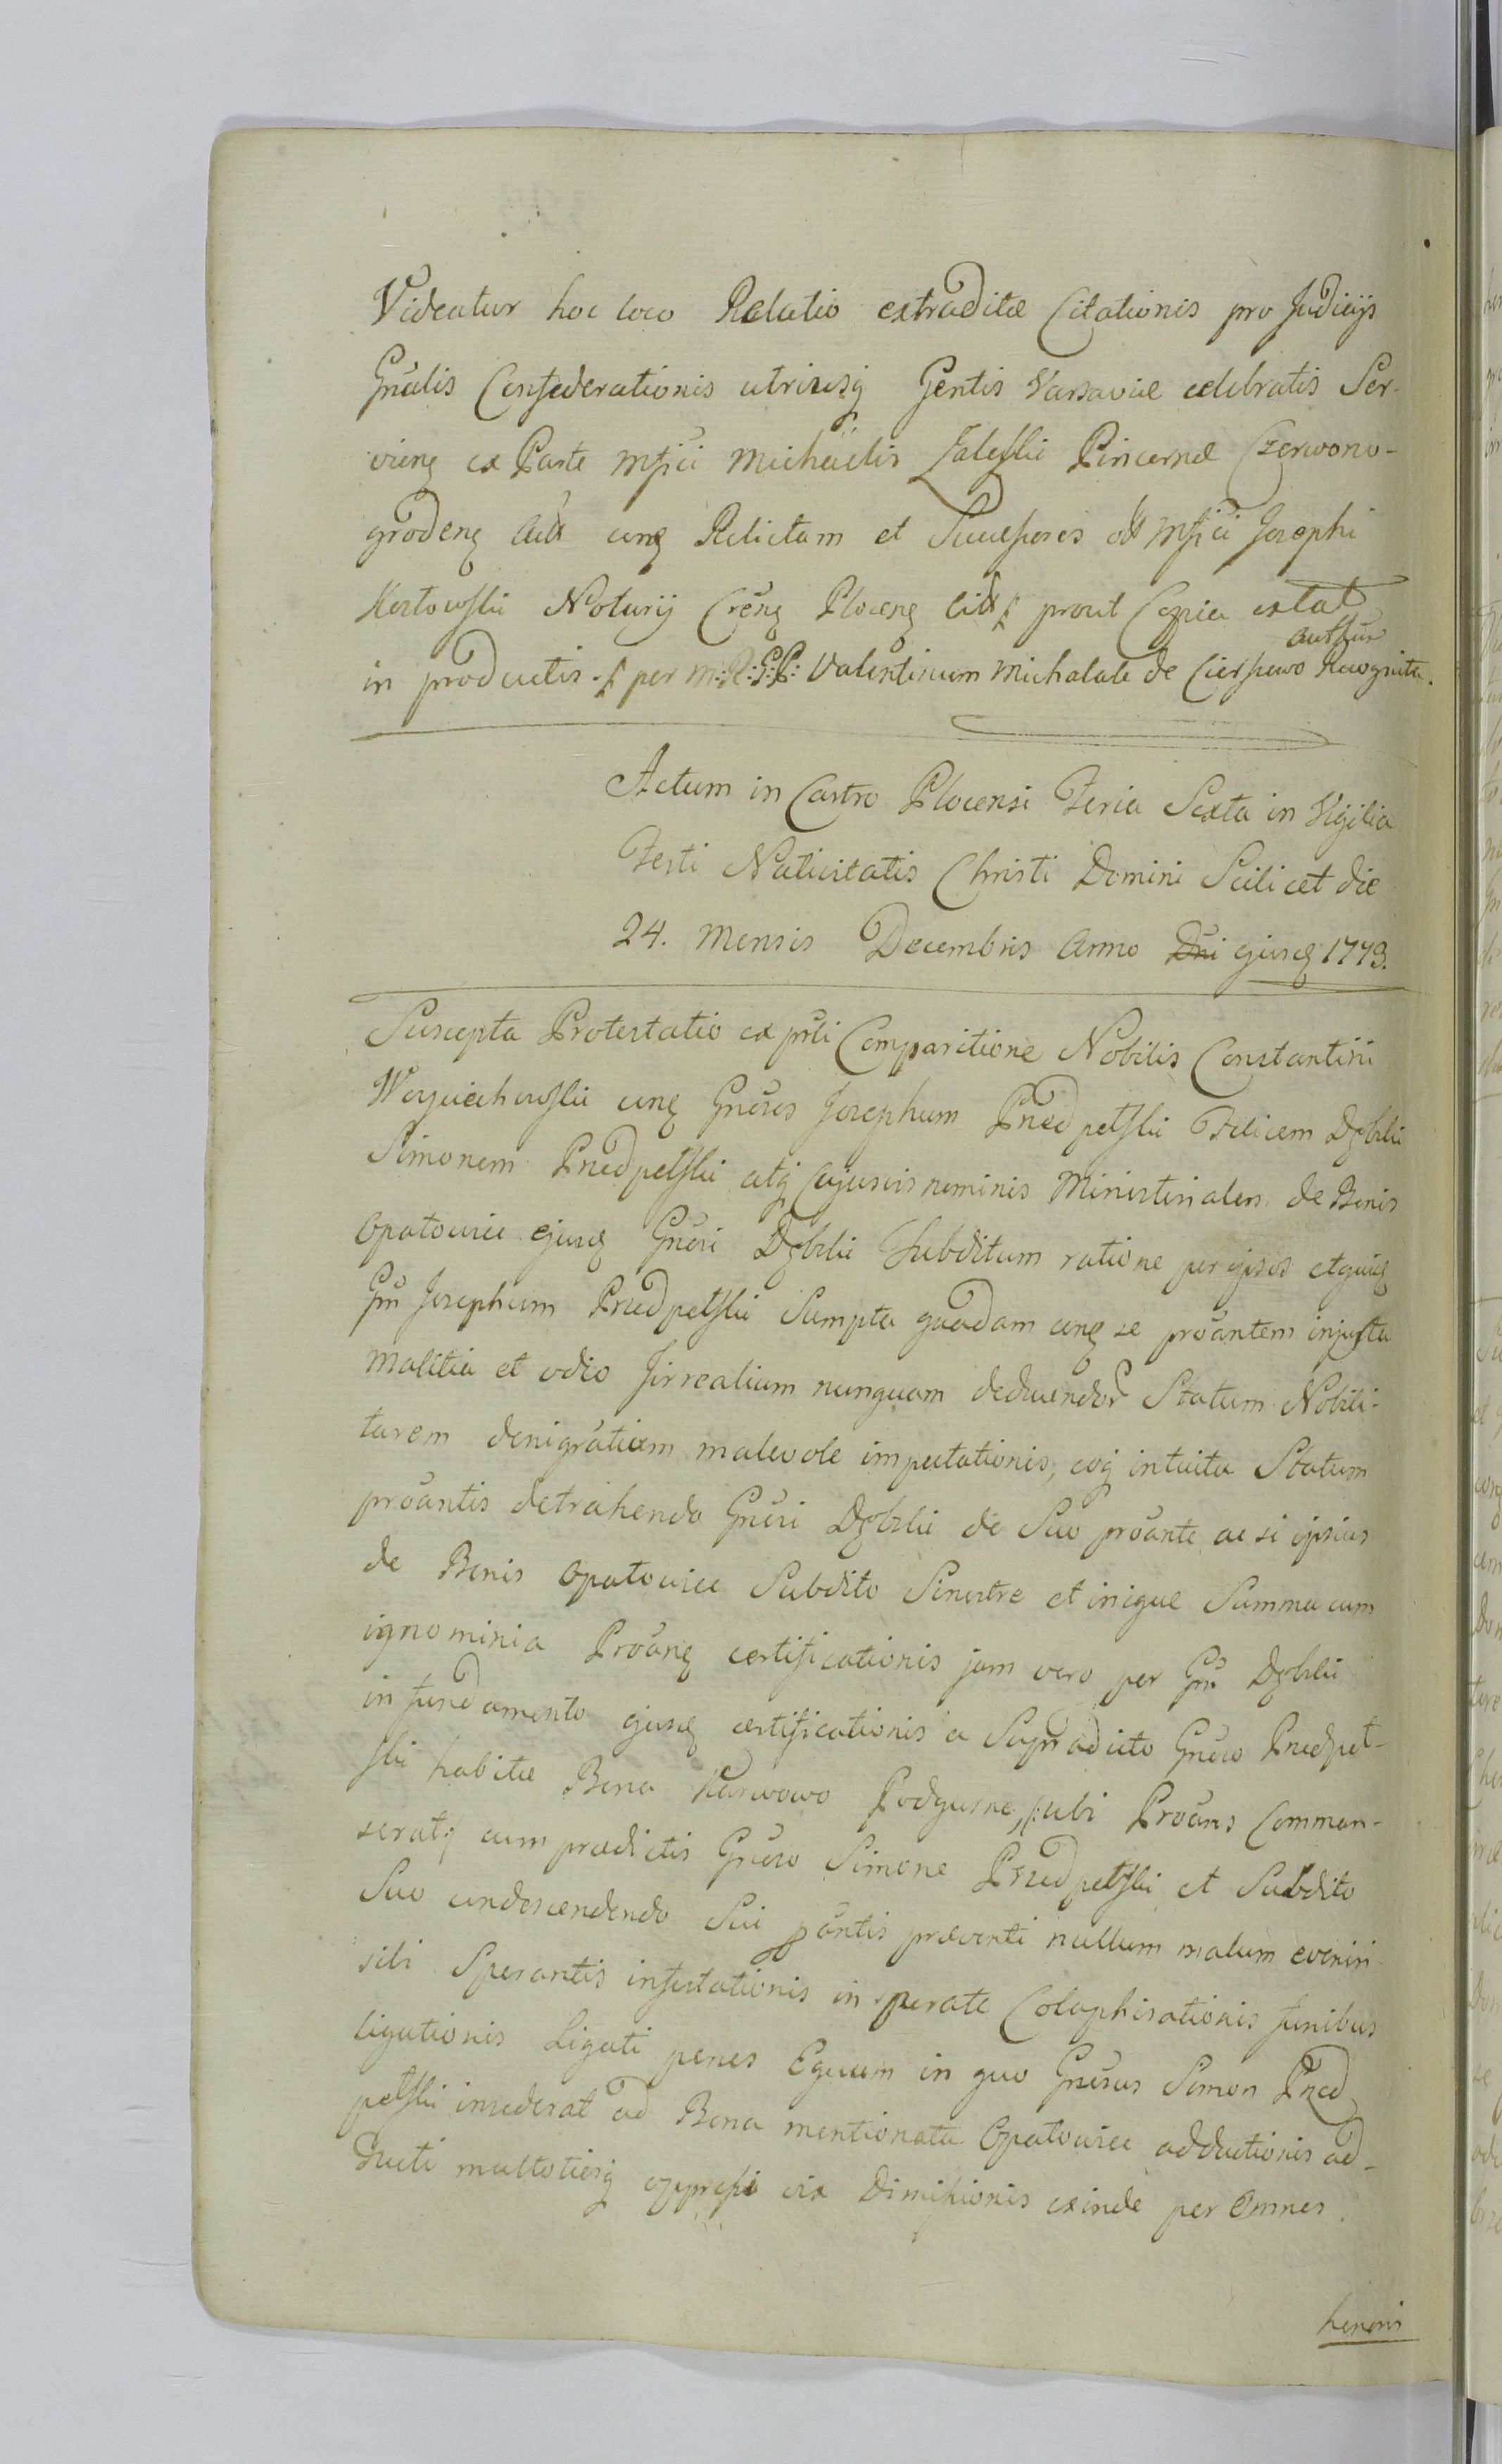 Videatur hoc loco Relatio extraditæ Citationis pro Judicijs
Gńalis Confœderationis utriusq Gentis Varsaviæ celebratis Ser-
vieng ex Parte Mfici Michaëlis Zaleski Pincernæ Czerwono-
grodeng ctra Relictam et Successores Mfici Josephi
Notarij Ploceng prout Copia extat
in productis. per M: R: G: P: Valentinum Michalak de Cierszewo Recognita.
authus
Actum in Castro Plocensi Feria Sexta in Vigilia
Festi Nativitatis Christi Domini Scilicet die
24. Mensis Decembris Anno Dni ejusd 1773.
Suscepta Protestatio ex pńti Comparitione Nobilis Constantini
Woyciechowski Gńesos Josephum Przedpelski Felicem Dębski
Simonem Przedpelski atq cujusvis nominis Ministerialem de Bonis
Opatowiec ejusd Gńsi Dębski Subditum ratione per ipsos etquid
Gm Josephum Przedpelski Sumpta quadam se proantem injusta
Malitia et odio Irrealium nunquam deducendor Statum Nobili-
tarem denigrativam malevole imputationis, eoq intuitu Statum
proantis detrahendo Gńsi Dębski de Suo proante ac si ipsius
de Bonis Opatowiec Subdito Sinistre et inique Summa cum
ignominia Proang certificationis jam vero per Gm Dębski
in fundamento ejusd certificationis a Supradicto Gńso Przedpel-
ski habitæ Bona Karwowo Podgurne, ubi Proans Comman-
serat cum prædictis Gńso Simone Przedpelski et Subdito
Suo condescendendo Sui pantis præventi nullum malum eveniri
sibi Sperantis infestationis insperate Colaphisationis funibus
ligationis Ligati penes Equum in quo Gńsus Simon Przed
pelski insederat ad Bona mentionata Opatowiec adductionis ad-
ducti multotiesq oppressi vix Dimissionis exinde per Omnes
honoris